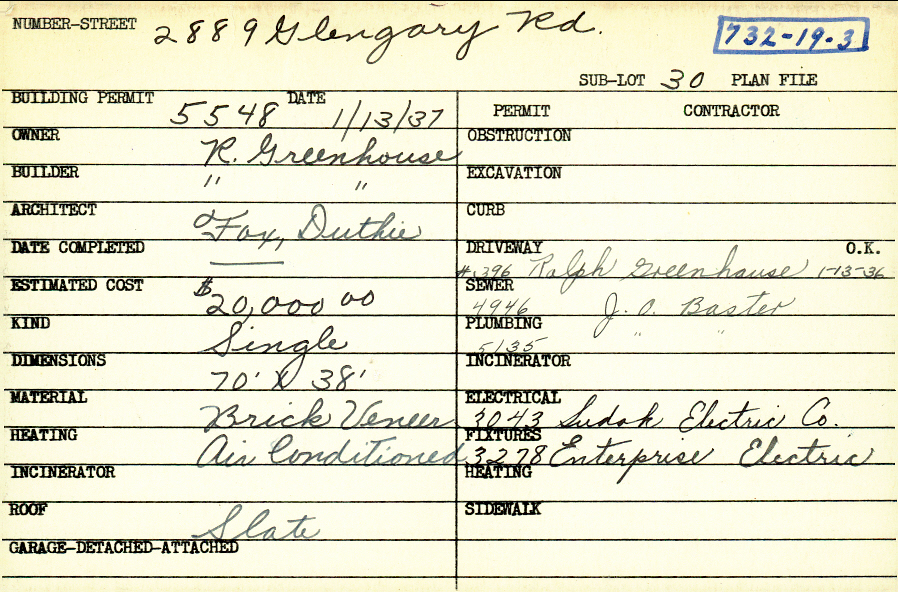 NUMBER-STREET 2889 Glengary Rd.
732-19-3
SUB-LOT 30 PLAN FILE
BUILDING PERMIT 5548 DATE 1/13/37
PERMIT CONTRACTOR
OWNER R. Greenhouse
OBSTRUCTION
BUILDER " "
EXCAVATION
ARCHITECT Fox, Duthie
CURB
DATE COMPLETED
DRIVEWAY #1396 Ralph Greenhouse 1-13-36 O.K.
ESTIMATED COST $20,000 00
SEWER 4946 J. O. Baster
KIND Single
PLUMBING 5135 " "
DIMENSIONS 70' X 38'
INCINERATOR
MATERIAL Brick Veneer
ELECTRICAL 3043 Sudak Electric Co.
HEATING Air Conditioned
FIXTURES 3278 Enterprise Electric
INCINERATOR
HEATING
ROOF Slate
SIDEWALK
GARAGE-DETACHED-ATTACHED